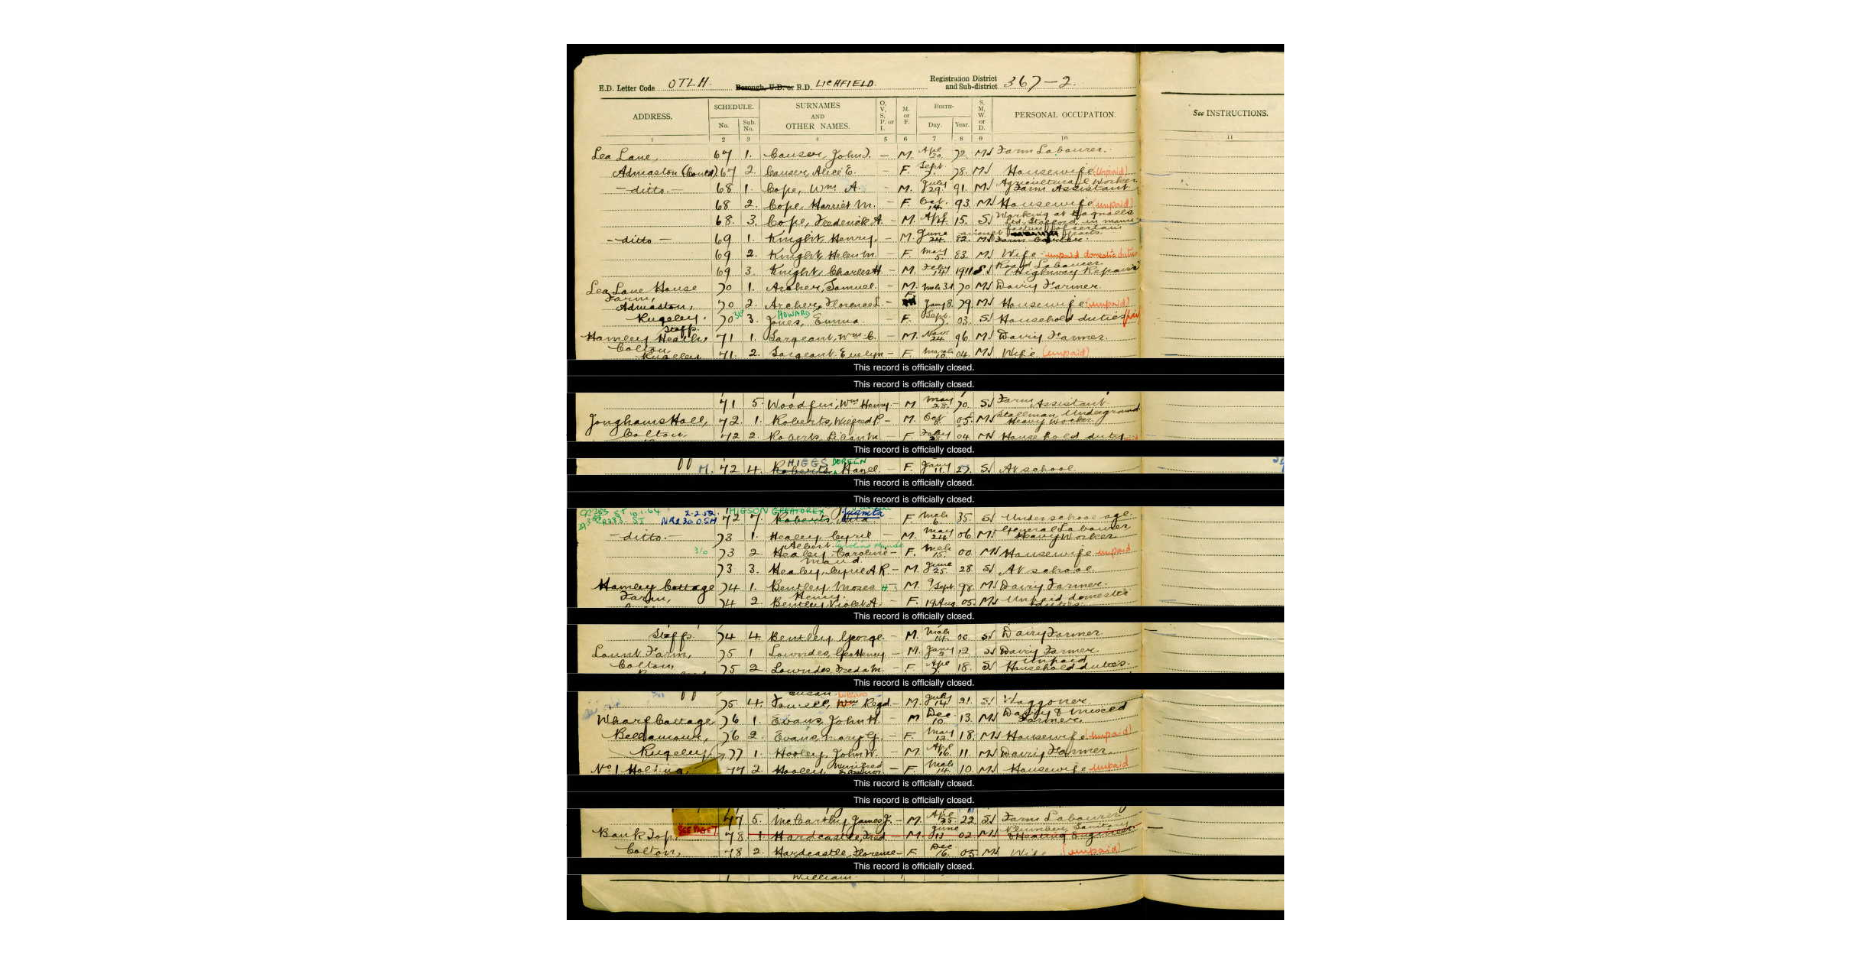 E.D. Letter Code OTLH Borough, U.D. or R.D. LICHFIELD. Registration District and Sub-district 367-2.
ADDRESS. SCHEDULE. No. Sub. No. SURNAMES AND OTHER NAMES. O. V. S. P. or I. M. or F. Birth- Day. Year. S. M. W. or D. PERSONAL OCCUPATION. See INSTRUCTIONS.
1 2 3 4 5 6 7 8 9 10 11
Lea Lane, 67 1. Causer, John J. - M. Apl 20 78 M Farm Labourer.
Admaston (Contd) 67 2. Causer Alice E. - F. Sept 78 M Housewife (unpaid)
- ditto - 68 1. Cope, Wm A. - M. July 29 91. M Agricultural Worker Farm Assistant
68 2. Cope, Harriet M. - F Oct 14 93. M Housewife (unpaid)
68. 3. Cope, Frederick A - M. Apl 15. S Working at Bagnalls Ltd. Stafford, in
- ditto - 69 1. Knight Henry. - M. June 24 82. M Farm
69 2. Knight - F. May 5 83. M Wife - unpaid domestic duties
69 3. Knight Charles H - M. Feby 14 1911 S Road Labourer (Highway Repairs)
Lea Lane House 70 1. Archer, Samuel. - M. Mch 31 70 M Dairy Farmer.
Farm,
Admaston, 70 2. Archer, Florence L. - F Jany 8. 79. M Housewife (unpaid)
Rugeley. 70 3. Jones, Emma HOWARD - F. Sept. 03. S Household duties paid
Staffs.
Hamley Heath 71 1. Sargeant, Wm C. - M. Nov 24 96. M Dairy Farmer.
Colton
Rugeley 71. 2. Sargeant Evelyn - F. March 04. M Wife (unpaid)
This record is officially closed.
This record is officially closed.
71 5. Wm Henry - M May 28 70. S Farm Assistant
Hall, 72. 1. Roberts, Wilfred P. - M. Oct 05. M Stallman Underground Heavy Worker
Colton 72 2. Roberts, - F 04 M Household duty
This record is officially closed.
72 4. Roberts, Hazel HIGGS DOREEN F. Jany 11. 27. S. At school
This record is officially closed.
This record is officially closed.
72 7. Roberts HIGSON GREATOREX Juanita F. Mch 6. 35 S Under school age.
- ditto. - 73 1. Healey Cyril Albert - M. May 24 06 M General Labourer Heavy Worker
73 2 Healey Caroline Maud. - F. Mch 15. 00. M Housewife unpaid
73 3. Healey, Cyril A R - M. June 25. 28 S At school.
Hamley Cottage 74 1. Bentley Moses Henry - M. 9 Sept 98. M Dairy Farmer.
Farm,
74 2. Bentley Violet A. - F. 19 Aug. 05. M Unpaid domestic duties
This record is officially closed.
Staffs. 74 4. Bentley George. - M. Mch 00. S Dairy Farmer
Lount Farm, 75 1 Lowndes, Geo Henry - M. Jany 12 S Dairy Farmer
Colton, 75 2. Lowndes, Freda M. - F Apl 18. S Unpaid Household duties.
This record is officially closed.
75 4. Wm Regd - M. July 14 21. S Waggoner
Wharf Cottage 76 1. Evans John H M Dec 10. 13. M Dairy & Mixed Farmer.
Bellamour, 76 2. Evans, Mary G. - F. May 12 18. M Housewife (unpaid)
Rugeley, 77 1. Hooley, John W. - M. Apl 16. 11. M Dairy Farmer.
No 1 Holding 77 2. Hooley Winifred - F. Mch 14. 10. M Housewife unpaid
This record is officially closed.
This record is officially closed.
77 5. McCarthy James J. - M. Apl 25. 22. S Farm Labourer
Bank Top, SEE PAGE 78 1 Hardcastle, Fred - M. June 11 02 M Plumber Sanitary & Heating Engineer
Colton, 78 2. Hardcastle, Florence - F. Dec 16. 05 M Wife (unpaid)
This record is officially closed.
William